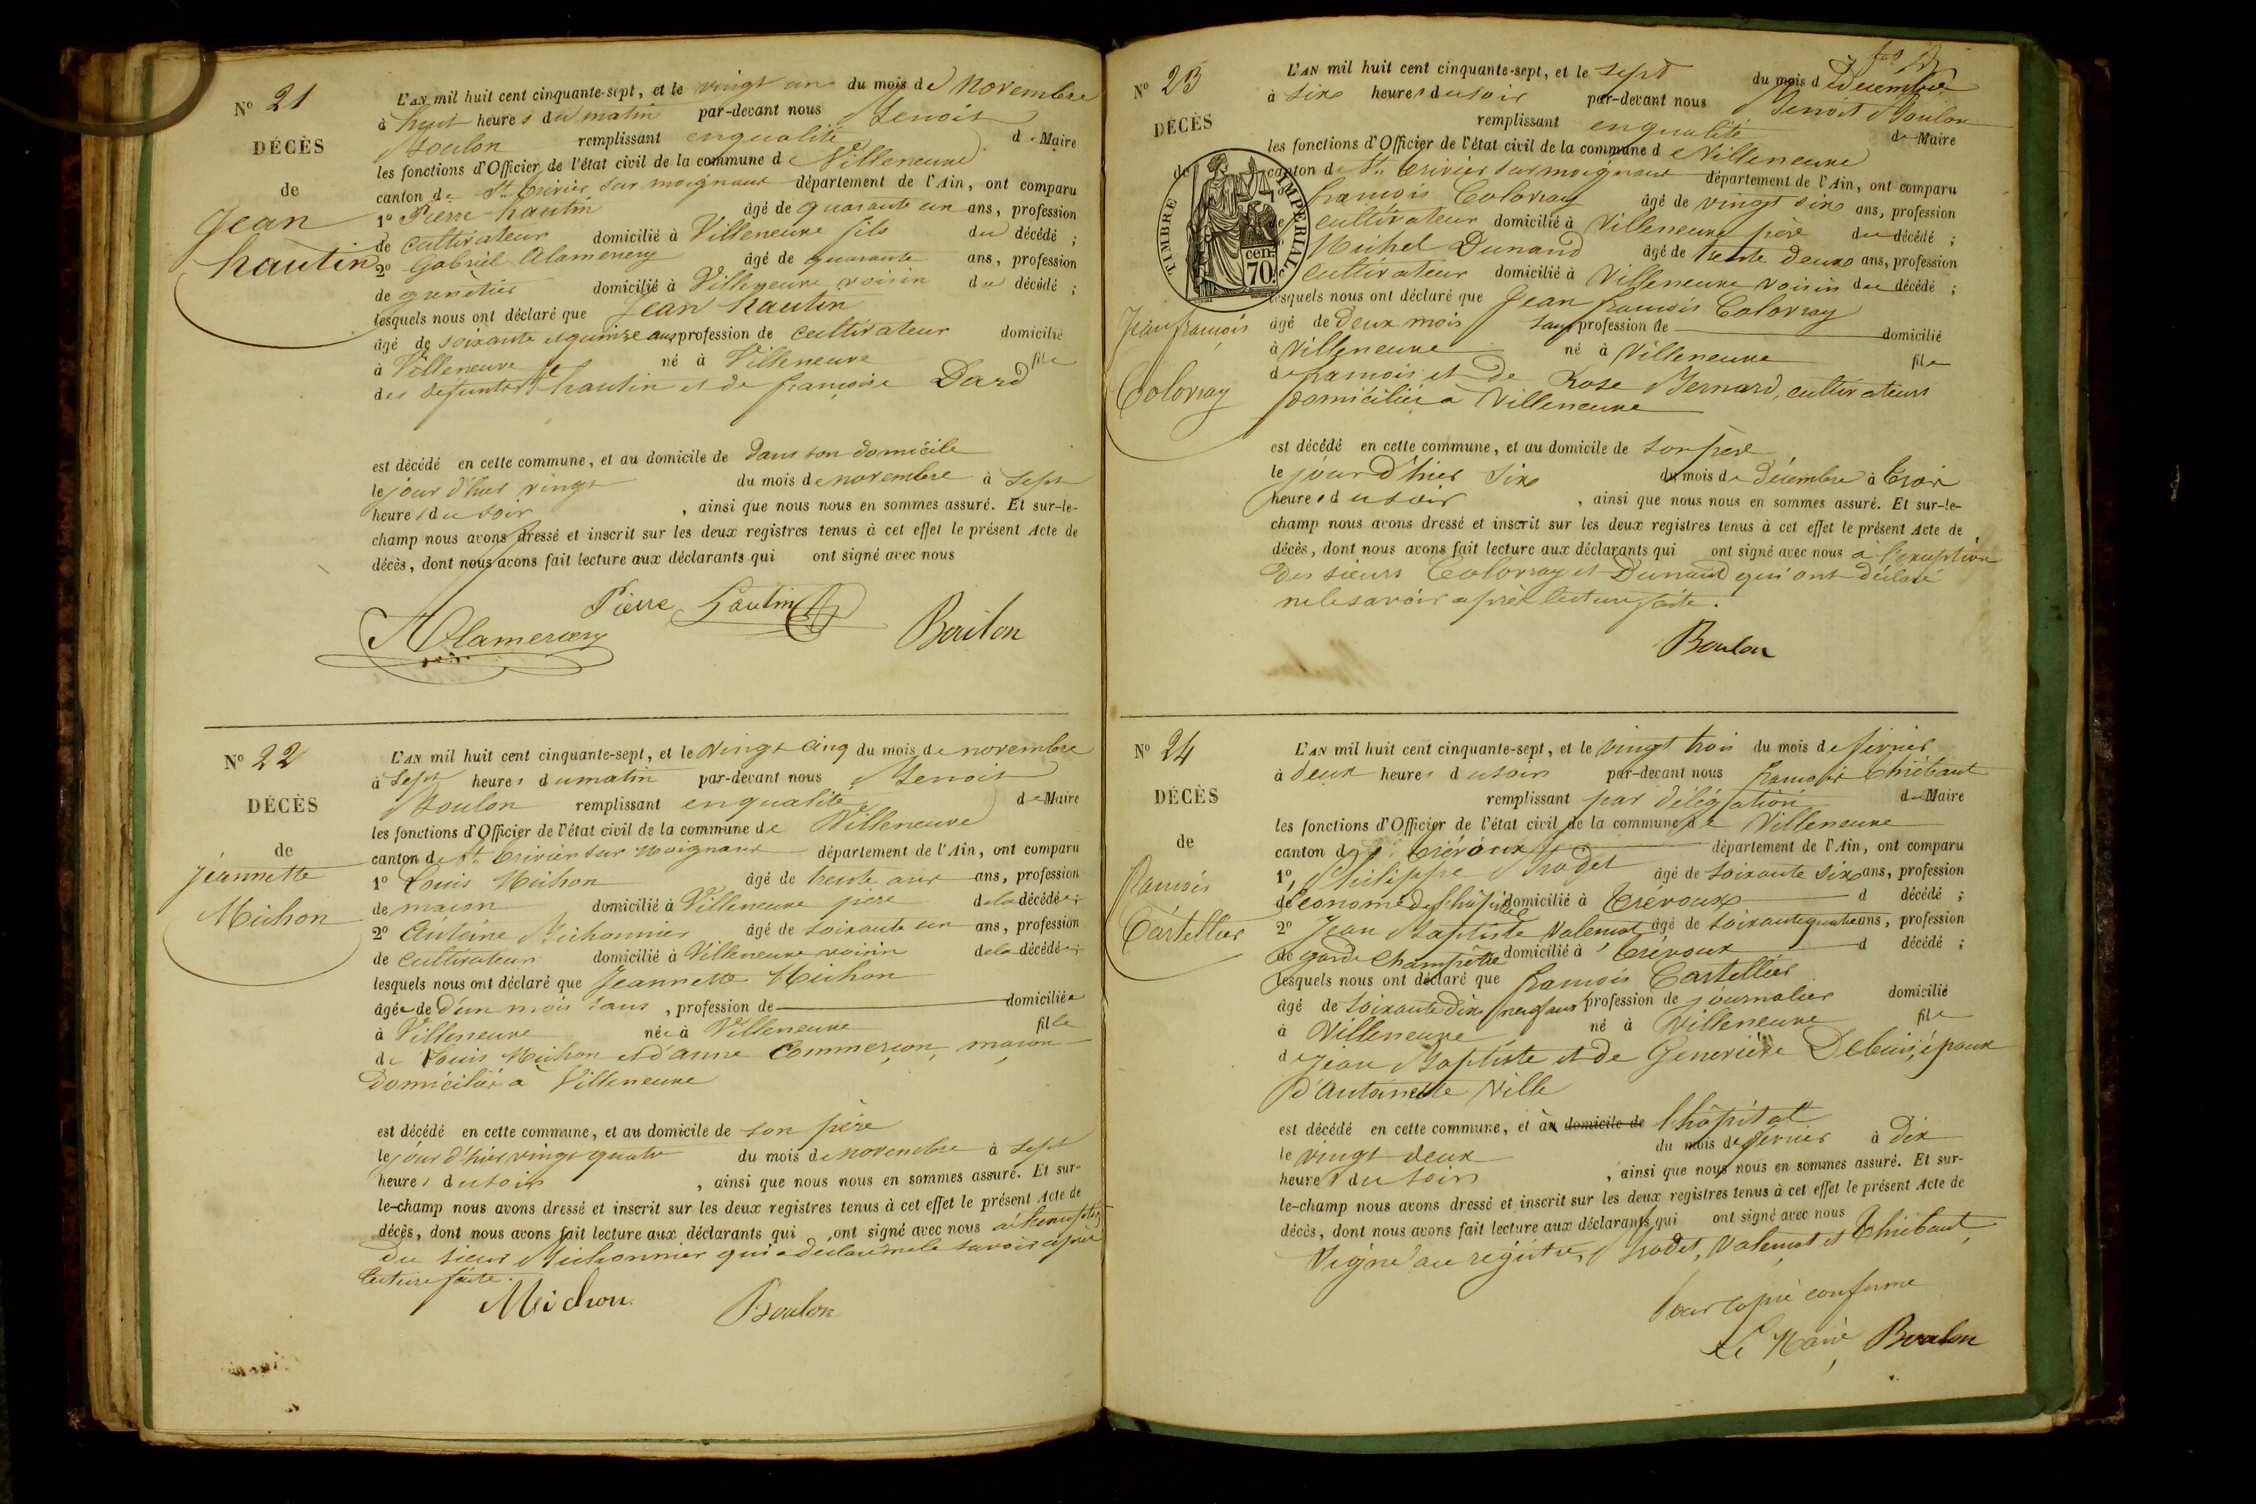 N° 21
DÉCÈS
de
Jean
hautin
L'AN mil huit cent cinquante-sept, et le vingt un du mois de Novembre
à huit heures du matin par-devant nous Benoit
Boulon remplissant en qualité de Maire
les fonctions d'Officier de l'état civil de la commune de Villeneuve
canton de St Trivier sur moignans département de l'Ain, ont comparu
1° Pierre hautin âgé de quarante un ans, profession
de cultivateur domicilié à Villeneuve fils du décédé ;
2° Gabriel Alamercery âgé de quarante ans, profession
de domicilié à Villeneuve voisin du décédé ;
lesquels nous ont déclaré que Jean hautin
âgé de soixante et quinze ans profession de cultivateur domicilié
à Villeneuve né à Villeneuve fils
des défunts hautin et de françoise Dard
est décédé en cette commune, et au domicile de dans son domicile
le jour d'hier vingt du mois de novembre à sept
heures du soir , ainsi que nous nous en sommes assuré. Et sur-le-
champ nous avons dressé et inscrit sur les deux registres tenus à cet effet le présent Acte de
décès, dont nous avons fait lecture aux déclarants qui ont signé avec nous
Pierre hautin
Alamercery Boulon
N° 22
DÉCÈS
de
Jeannette
Michon
L'AN mil huit cent cinquante-sept, et le vingt cinq du mois de novembre
à sept heures du matin par-devant nous Benoit
Boulon remplissant en qualité de Maire
les fonctions d'Officier de l'état civil de la commune de Villeneuve
canton de St Trivier sur moignans département de l'Ain, ont comparu
1° Louis Michon âgé de trente ans, profession
de maçon domicilié à Villeneuve père de la décédée ;
2° Antoine Michonnier âgé de soixante un ans, profession
de cultivateur domicilié à Villeneuve voisin de la décédée ;
lesquels nous ont déclaré que Jeannette Michon
âgée de d'un mois sans , profession de domiciliée
à Villeneuve née à Villeneuve fille
de Louis Michon et d'anne Commerçon, maçon
domiciliés à Villeneuve
est décédé en cette commune, et au domicile de son père
le jour d'hier vingt quatre du mois de novembre à sept
heures du soir , ainsi que nous nous en sommes assuré. Et sur-
le-champ nous avons dressé et inscrit sur les deux registres tenus à cet effet le présent Acte de
décès, dont nous avons fait lecture aux déclarants qui ont signé avec nous à l'exception
du sieur Michonnier qui a déclaré ne le savoir après
lecture faite.
Michon Boulon
N° 23
DÉCÈS
de
TIMBRE IMPERIAL
70 cen.
Jean françois
Colovray
L'AN mil huit cent cinquante-sept, et le sept du mois de Décembre
à six heures du soir par-devant nous Benoit Boulon
remplissant en qualité de Maire
les fonctions d'Officier de l'état civil de la commune de Villeneuve
canton de St Trivier sur moignans département de l'Ain, ont comparu
françois Colovray âgé de vingt six ans, profession
cultivateur domicilié à Villeneuve père du décédé ;
Michel Dunand âgé de trente deux ans, profession
cultivateur domicilié à Villeneuve voisin du décédé ;
lesquels nous ont déclaré que Jean françois Colovray
âgé de deux mois sans profession de domicilié
à Villeneuve né à Villeneuve fils
de françois et de Rose Bernard, cultivateurs
domiciliés à Villeneuve
est décédé en cette commune, et au domicile de son père
le jour d'hier six du mois de décembre à trois
heures du soir , ainsi que nous nous en sommes assuré. Et sur-le-
champ nous avons dressé et inscrit sur les deux registres tenus à cet effet le présent Acte de
décès, dont nous avons fait lecture aux déclarants qui ont signé avec nous à l'exception
des sieurs Colovray et Dunand qui ont déclaré
ne le savoir après lecture faite.
Boulon
N° 24
DÉCÈS
de
François
Cartellier
L'AN mil huit cent cinquante-sept, et le vingt trois du mois de février
à deux heures du soir par-devant nous françois Thiébaut
remplissant par délégation de Maire
les fonctions d'Officier de l'état civil de la commune de Villeneuve
canton de Trévoux département de l'Ain, ont comparu
1° Philippe Brodet âgé de soixante six ans, profession
d'économe de l'hôpital domicilié à Trévoux d décédé ;
2° Jean Baptiste Valensot âgé de soixante quatre ans, profession
de garde champêtre domicilié à Trévoux d décédé ;
lesquels nous ont déclaré que françois Cartellier
âgé de soixante dix neuf ans profession de journalier domicilié
à Villeneuve né à Villeneuve fils
de jean Baptiste et de Geneviève époux
d'Antoinette Ville
est décédé en cette commune, et à domicile de l'hôpital
le vingt deux du mois de février à dix
heures du soir , ainsi que nous nous en sommes assuré. Et sur-
le-champ nous avons dressé et inscrit sur les deux registres tenus à cet effet le présent Acte de
décès, dont nous avons fait lecture aux déclarants qui ont signé avec nous
Signé au registre, Brodet, Valensot et Thiébaut,
Pour copie conforme
Le Maire, Boulon